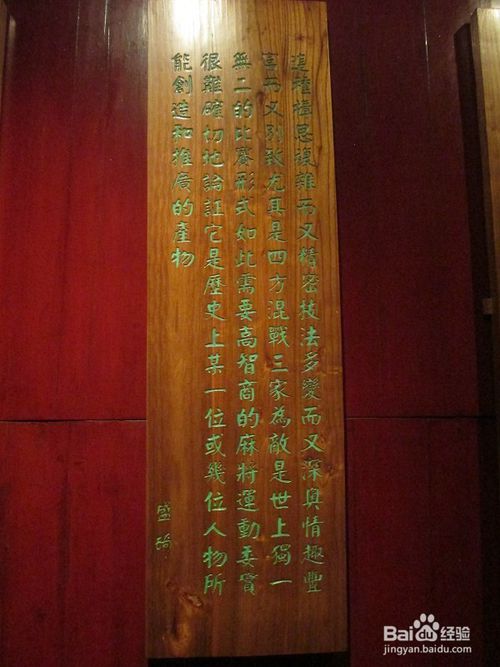 這種構思複雜而又精密技法多變而又深奧情趣豐
富而又別致尤其是四方混戰三家為敵是世上獨一
無二的比賽形式如此需要高智商的麻將運動委實
很難確切地論証它是歷史上某一位或幾位人物所
能創造和推廣的產物
盛琦
Baidu 经验
jingyan.baidu.com